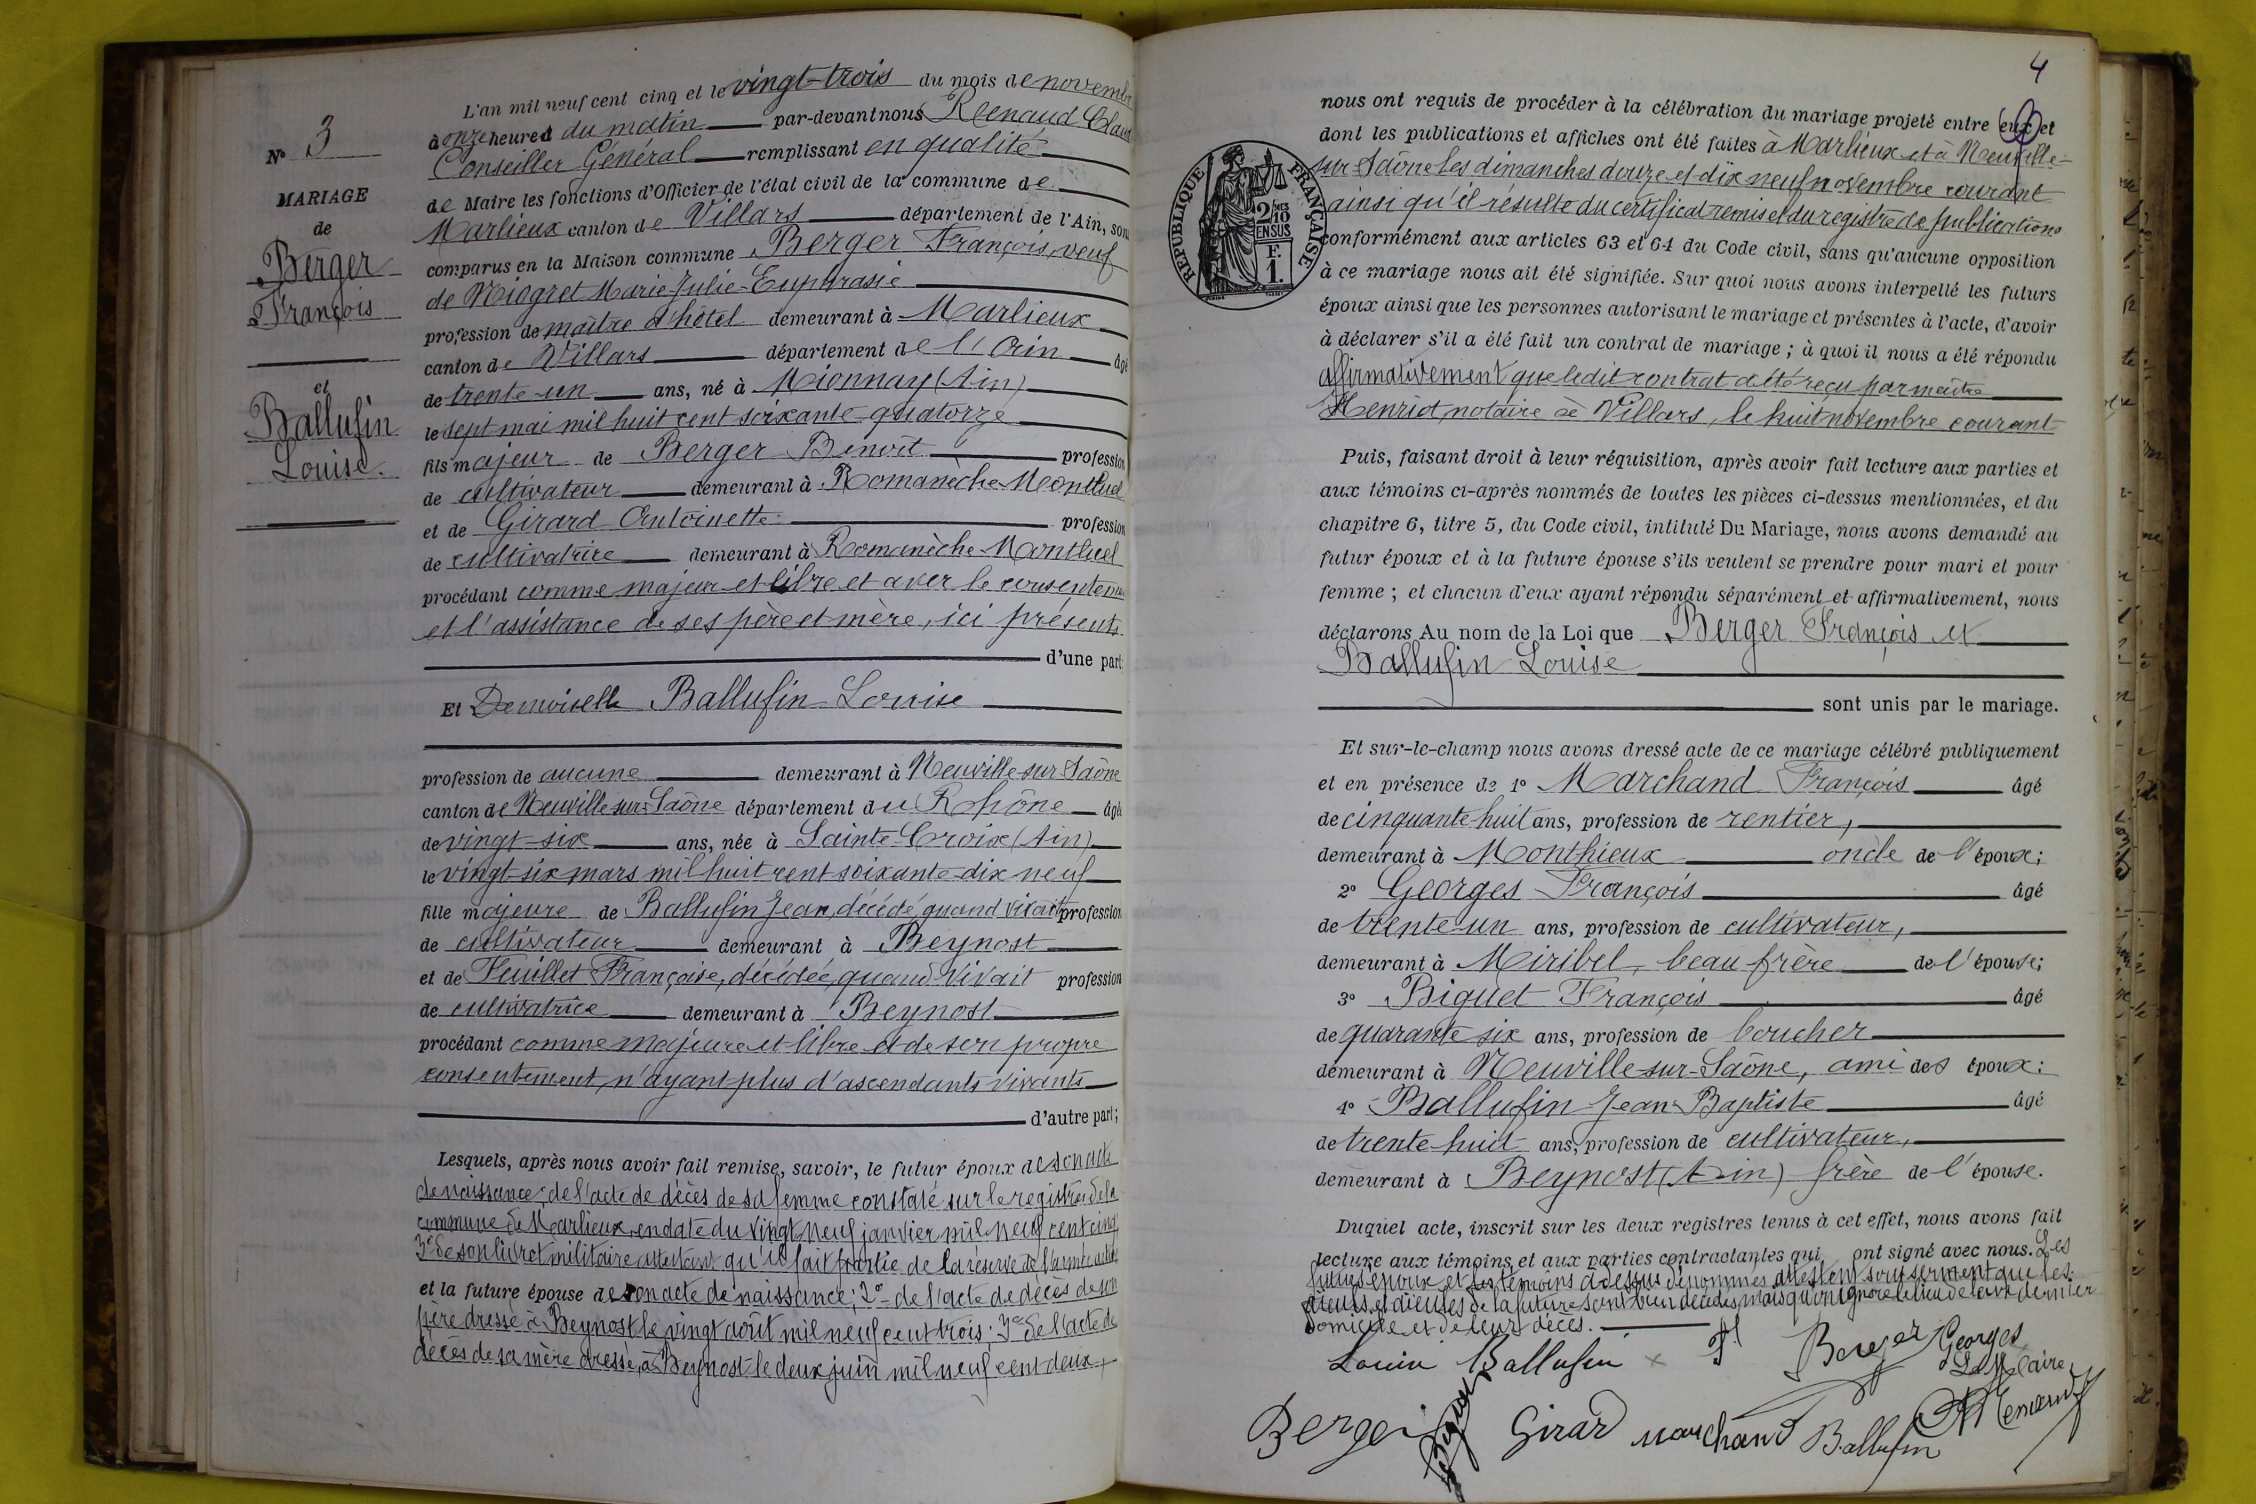 N° 3
MARIAGE
de
Berger
François
et
Ballufin
Louise.
L'an mil neuf cent cinq et le vingt-trois du mois de novembre
à onze heures du matin par-devant nous Renaud Claude
Conseiller Général remplissant en qualité
de Maire les fonctions d'Officier de l'état civil de la commune de
Marlieux canton de Villars département de l'Ain, sont
comparus en la Maison commune Berger François, veuf
de Niogret Marie-Julie-Euphrasie
profession de maître d'hôtel demeurant à Marlieux
canton de Villars département de l'Ain âgé
de trente-un ans, né à Mionnay (Ain)
le sept mai mil huit cent soixante-quatorze
fils majeur de Berger Benoît profession
de cultivateur demeurant à Romanèche Montluel
et de Girard Antoinette profession
de cultivatrice demeurant à Romanèche-Montluel
procédant comme majeur et libre et avec le consentement
et l'assistance de ses père et mère, ici présents.
d'une part;
Et Demoiselle Ballufin Louise
profession de aucune demeurant à Neuville-sur-Saône
canton de Neuville sur-Saône département du Rhône âgée
de vingt-six ans, née à Sainte-Croix (Ain)
le vingt-six mars mil huit cent soixante-dix neuf
fille majeure de Ballufin Jean, décédé, quand vivait profession
de cultivateur demeurant à Beynost
et de Feuillet Françoise, décédée, quand vivait profession
de cultivatrice demeurant à Beynost
procédant comme majeure et libre et de son propre
consentement, n'ayant plus d'ascendants vivants
d'autre part;
Lesquels, après nous avoir fait remise, savoir, le futur époux de son acte
de naissance; de l'acte de décès de sa femme constaté sur le registre de la
commune de Marlieux, en date du vingt neuf janvier mil neuf cent cinq
3° de son livret militaire attestant qu'il fait partie de la réserve de l'armée active
et la future épouse de son acte de naissance; 2° de l'acte de décès de son
père dressé à Beynost le vingt août mil neuf cent trois; 3° de l'acte de
décès de sa mère dressé, à Beynost le deux juin mil neuf cent deux
4
RÉPUBLIQUE FRANÇAISE
2/10
EN SUS
F.
1.
nous ont requis de procéder à la célébration du mariage projeté entre eux et
dont les publications et affiches ont été faites à Marlieux et à Neuville-
sur-Saône les dimanches douze et dix neuf novembre courant
ainsi qu'il résulte du certificat remis et du registre de publications
conformément aux articles 63 et 64 du Code civil, sans qu'aucune opposition
à ce mariage nous ait été signifiée. Sur quoi nous avons interpellé les futurs
époux ainsi que les personnes autorisant le mariage et présentes à l'acte, d'avoir
à déclarer s'il a été fait un contrat de mariage; à quoi il nous a été répondu
affirmativement que ledit contrat a été reçu par maître
Henriot, notaire à Villars, le huit novembre courant
Puis, faisant droit à leur réquisition, après avoir fait lecture aux parties et
aux témoins ci-après nommés de toutes les pièces ci-dessus mentionnées, et du
chapitre 6, titre 5, du Code civil, intitulé Du Mariage, nous avons demandé au
futur époux et à la future épouse s'ils veulent se prendre pour mari et pour
femme; et chacun d'eux ayant répondu séparément et affirmativement, nous
déclarons Au nom de la Loi que Berger François et
Ballufin Louise
sont unis par le mariage.
Et sur-le-champ nous avons dressé acte de ce mariage célébré publiquement
et en présence de 1° Marchand François âgé
de cinquante-huit ans, profession de rentier,
demeurant à Monthieux oncle de l'époux;
2° Georges François âgé
de trente-un ans, profession de cultivateur,
demeurant à Miribel, beau-frère de l'épouse;
3° Biguet François âgé
de quarante six ans, profession de boucher
demeurant à Neuville-sur-Saône, ami des époux;
4° Ballufin Jean-Baptiste âgé
de trente-huit ans, profession de cultivateur,
demeurant à Beynost (Ain) frère de l'épouse.
Duquel acte, inscrit sur les deux registres tenus à cet effet, nous avons fait
lecture aux témoins et aux parties contractantes qui ont signé avec nous. Les
futurs époux et les témoins ci dessus dénommés attestent sous serment que les
aïeuls et aïeules de la future sont bien décédés, mais qu'on ignore le lieu de leur dernier
domicile et de leur décès.
Louise Ballufin Berger Georges
Le Maire,
Berger Biguet Girard Marchand Ballufin Renaud